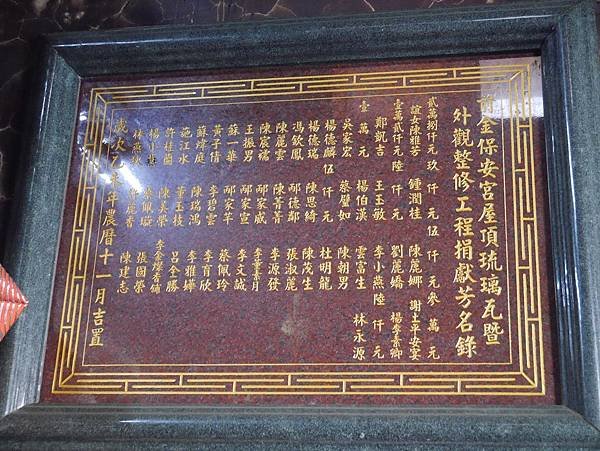 前金保安宮屋頂琉璃瓦暨
外觀整修工程捐獻芳名錄
貳萬捌仟元 玖仟元 伍仟元 參萬元
誼女陳雅芳 鍾潤桂 陳麗娜 謝土平安宴
壹萬貳仟元 陸仟元 劉麗嬌 楊李素卿
鄭凱吉 王玉敏 李小燕 陸仟元
壹萬元 楊伯漢 雲富生 林永源
吳家宏 蔡璧如 陳朝男
楊德麟 伍仟元 杜明龍
楊德瑞 陳思綺 陳茂生
馮欽鳳 邴德鄰 張淑麗
陳麗雲 陳菁菁 李源發
陳宸褣 邴家威 李葉素月
王振男 邴家宣 李文誠
蘇一華 邴家芊 蔡佩玲
黃子倩 李碧雲 李育欣
蘇煒庭 陳瑞鴻 李雅嬅
施江水 董玉枝 呂全勝
許桂蘭 陳美榮 李金燦香鋪
楊小 佩璇 張國榮
林燕 麗香 陳建志
歲次乙 年農曆十一月吉置